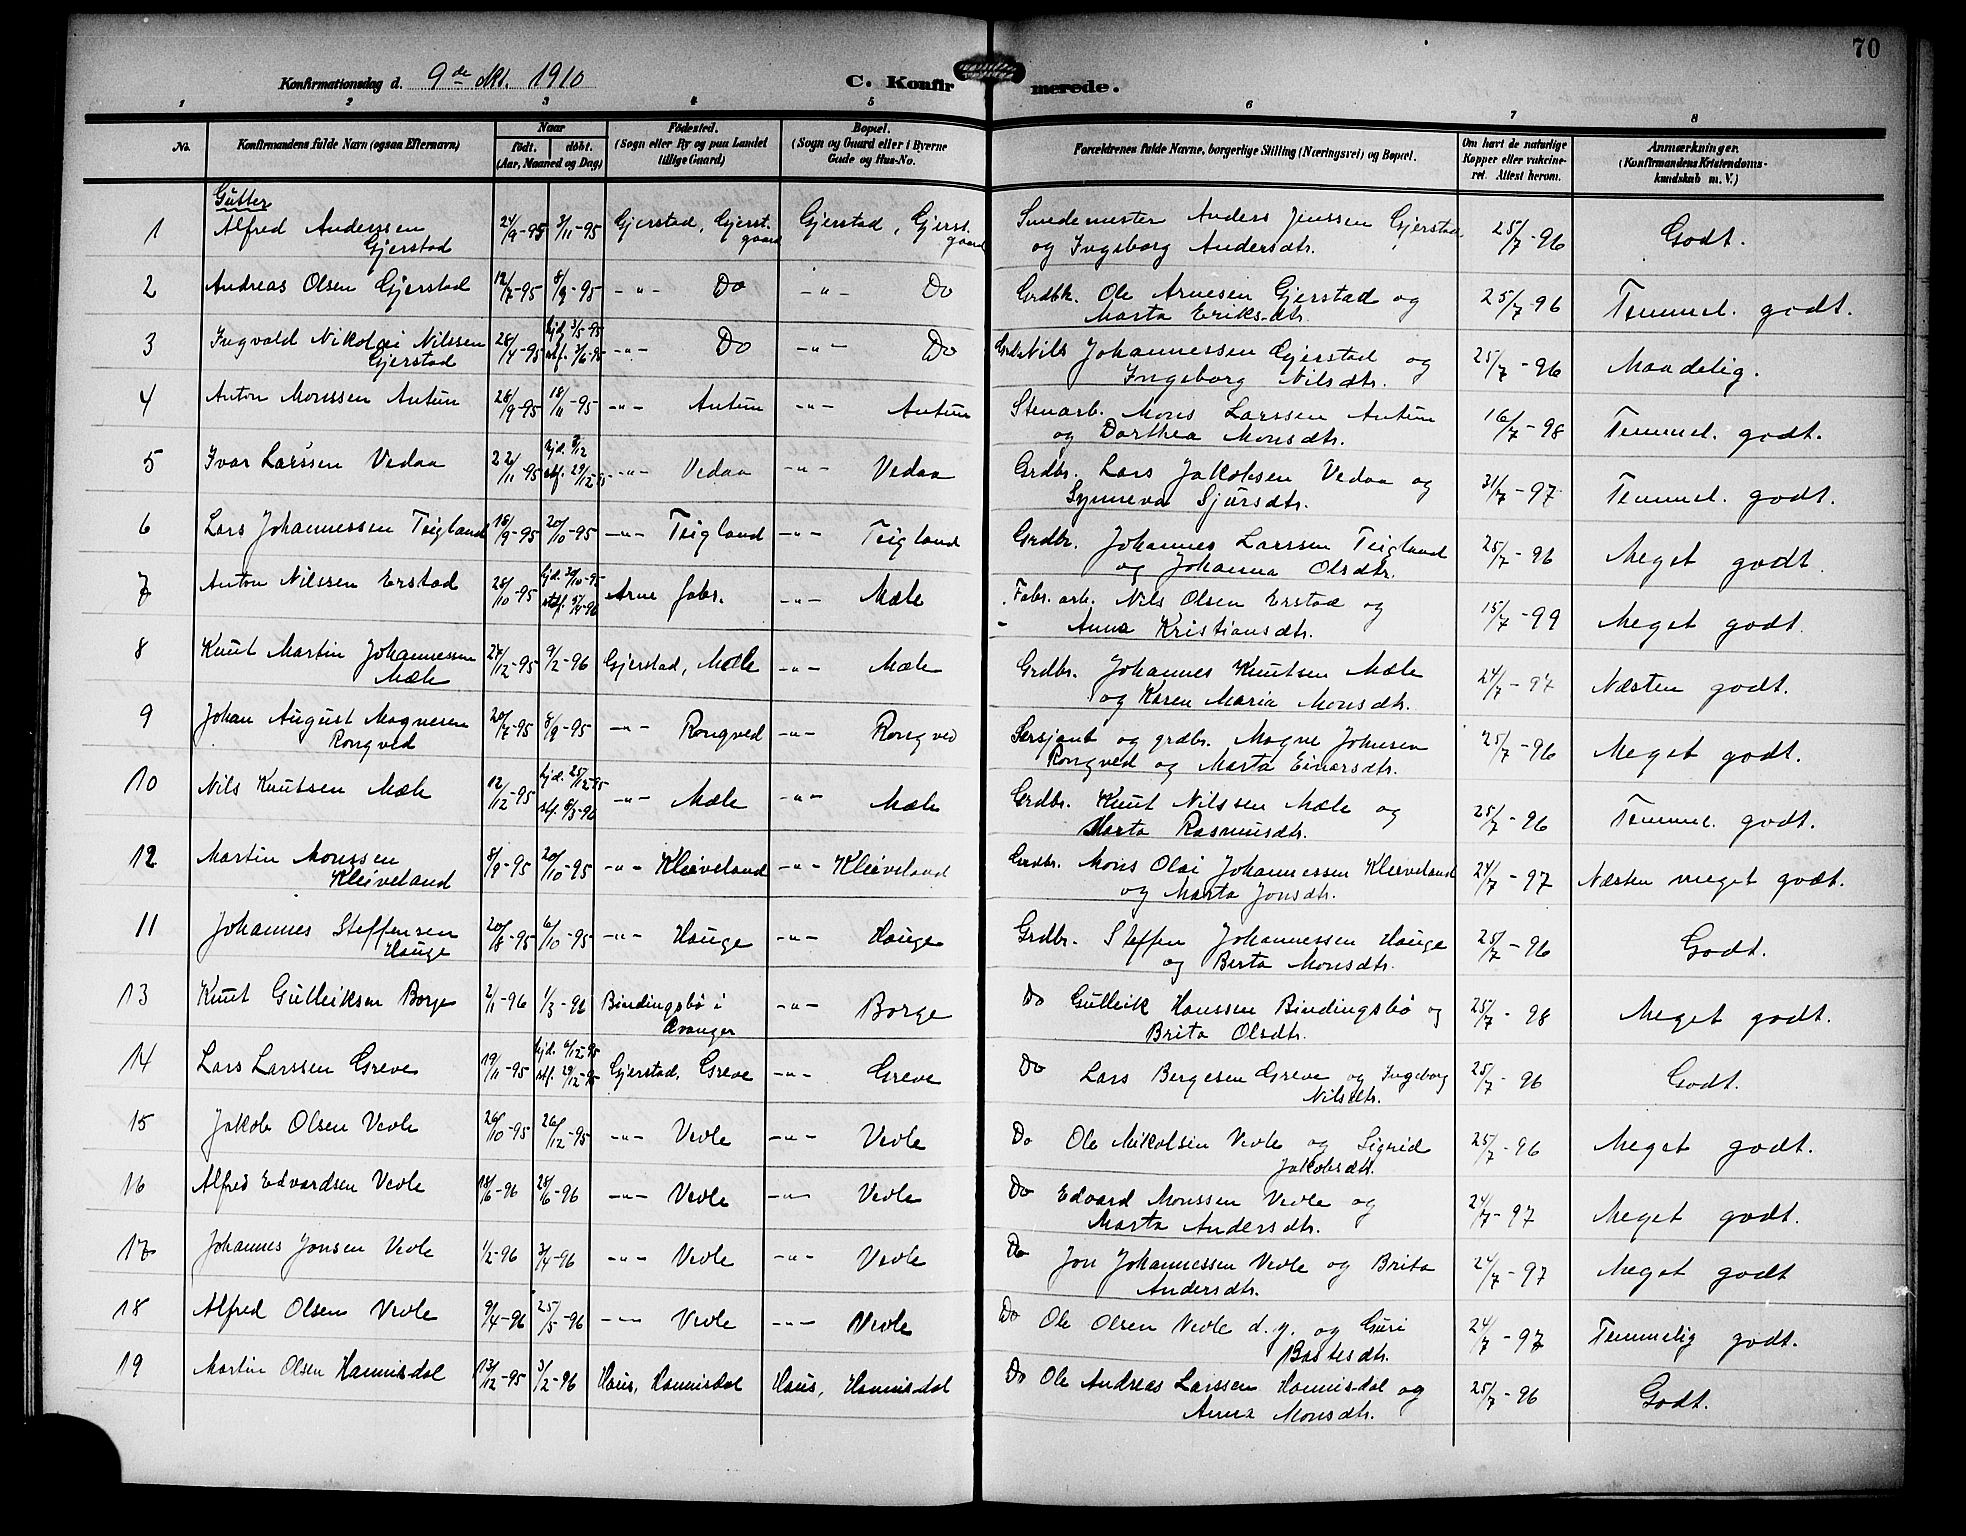 70
Konfirmationsdag d. 9de Okt. 1910
C. Konfirmerede.
1 2 3 4 5 6 7 8
No. | Konfirmandens fulde Navn (ogsaa Efternavn) | Naar født. døbt. (Aar, Maaned og Dag) | Fødested. (Sogn eller By og paa Landet tillige Gaard) | Bopæl. (Sogn og Gaard eller i Byerne Gade og Hus-No. | Forældrenes fulde Navne, borgerlige Stilling (Næringsvei) og Bopæl. | Om havt de naturlige Kopper eller vakcineret. Attest herom. | Anmærkninger. (Konfirmandens Kristendomskundskab m. V.)
Gutter
1 | Alfred Anderssen Gjerstad | 24/9-95 | 3/11-95 | Gjerstad, Gjerst.gaard | Gjerstad, Gjerst.gaard | Smedemester Anders Jenssen Gjerstad og Ingeborg Andersdtr. | 25/7-96 | Godt.
2 | Andreas Olsen Gjerstad | 12/7-95 | 8/9-95 | -"- Do | -"- Do | Grdbr. Ole Arnesen Gjerstad og Marta Eriksdtr. | 25/7-96 | Temmel. godt.
3 | Ingvald Nikolai Nilssen Gjerstad | 28/4-95 | hjd. 3/5-95 stf. 3/6-95 | -"- Do | -"- Do | Grdb. Nils Johannessen Gjerstad og Ingeborg Nilsdtr. | 25/7-96 | Maadelig.
4 | Anton Monssen Antun | 28/9-95 | 18/11-95 | -"- Antun | -"- Antun | Stenarb. Mons Larssen Antun og Dorthea Monsdtr. | 16/7-98 | Temmel. godt.
5 | Ivar Larssen Vedaa | 22/11-95 | hjd. 8/12 stf. 29/12-95 | -"- Vedaa | -"- Vedaa | Grdbr. Lars Jakobsen Vedaa og Synneva Sjursdtr. | 31/7-97 | Temmel. godt.
6 | Lars Johannessen Teigland | 18/9-95 | 20/10-95 | -"- Teigland | -"- Teigland | Grdbr. Johannes Larssen Teigland og Johanna Olsdtr. | 25/7-96 | Meget godt.
7 | Anton Nilssen Erstad | 28/10-95 | hjd. 30/10-95 stf. 5/4-96 | Arne fabr. | -"- Mæle | Fabr. arb. Nils Olsen Erstad og Anna Kristiansdtr. | 15/7-99 | Meget godt.
8 | Knut Martin Johannessen Mæle | 27/12-95 | 9/2-96 | Gjerstad, Mæle | -"- Mæle | Grdbr. Johannes Knutsen Mæle og Karen Maria Monsdtr. | 24/7-97 | Næsten godt.
9 | Johan August Magnesen Rongved | 20/7-95 | 8/9-95 | -"- Rongved | -"- Rongved | Sersjant og grdbr. Magne Johnsen Rongved og Marta Einarsdtr. | 25/7-96 | Meget godt.
10 | Nils Knutsen Mæle | 12/12-95 | hjd. 25/12-95 stf. 8/3-96 | -"- Mæle | -"- Mæle | Grdbr. Knut Nilssen Mæle og Marta Rasmusdtr. | 25/7-96 | Temmel. godt.
12 | Martin Monssen Kleiveland | 8/9-95 | 20/10-95 | -"- Kleiveland | -"- Kleiveland | Grdbr. Mons Olai Johannessen Kleiveland og Marta Jonsdtr. | 24/7-97 | Næsten meget godt.
11 | Johannes Steffensen Hauge | 20/8-95 | 6/10-95 | -"- Hauge | -"- Hauge | Grdbr. Steffen Johannessen Hauge og Berta Monsdtr. | 25/7-96 | Godt.
13 | Knut Gulleiksen Borge | 2/1-96 | 1/3-96 | Bindingsbø i Evanger | -"- Borge | Do Gulleik Hanssen Bindingsbø og Brita Olsdtr. | 25/7-98 | Meget godt.
14 | Lars Larssen Greve | 19/11-95 | hjd. 6/12-95 stf. 29/12-95 | Gjerstad, Greve | -"- Greve | Do Lars Bergesen Greve og Ingeborg Nilsdtr. | 25/7-96 | Godt.
15 | Jakob Olsen Vevle | 26/10-95 | 26/12-95 | -"- Vevle | -"- Vevle | Do Ole Mikalsen Vevle og Sigrid Jakobsdtr. | 25/7-96 | Meget godt.
16 | Alfred Edvardsen Vevle | 18/6-96 | 28/6-96 | -"- Vevle | -"- Vevle | Do Edvard Monssen Vevle og Marta Andersdtr. | 24/7-97 | Meget godt.
17 | Johannes Jonsen Vevle | 1/2-96 | 3/4-96 | -"- Vevle | -"- Vevle | Do Jon Johannessen Vevle og Brita Andersdtr. | 24/7-97 | Meget godt
18 | Alfred Olsen Vevle | 9/4-96 | 25/5-96 | -"- Vevle | -"- Vevle | Do Ole Olsen Vevle d. y. og Guri Bastesdtr. | 24/7-97 | Temmelig godt.
19 | Martin Olsen Hannisdal | 13/12-95 | 3/2-96 | Haus, Hannisdal | Haus, Hannisdal | Do Ole Andreas Larssen Hannisdal og Anna Monsdtr. | 25/7-96 | Godt.